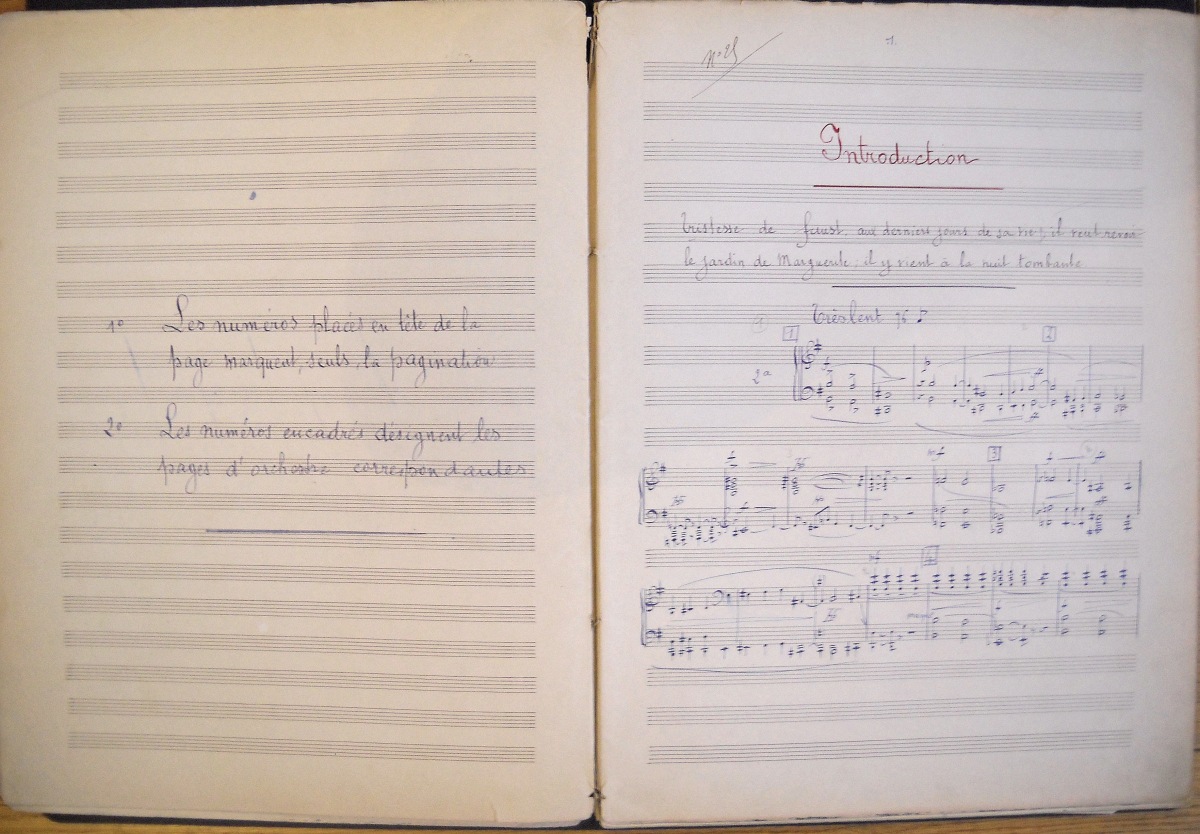 1º Les numéros placés en tête de la
page marquent, seuls, la pagination
2º Les numéros encadrés désignent les
pages d'orchestre correspondantes
1.
Introduction
Tristesse de faust, aux derniers jours de sa vie, il veut revoir
le jardin de Marguerite; il y vient à la nuit tombante
Très lent 76
1 2
2ª
3
4